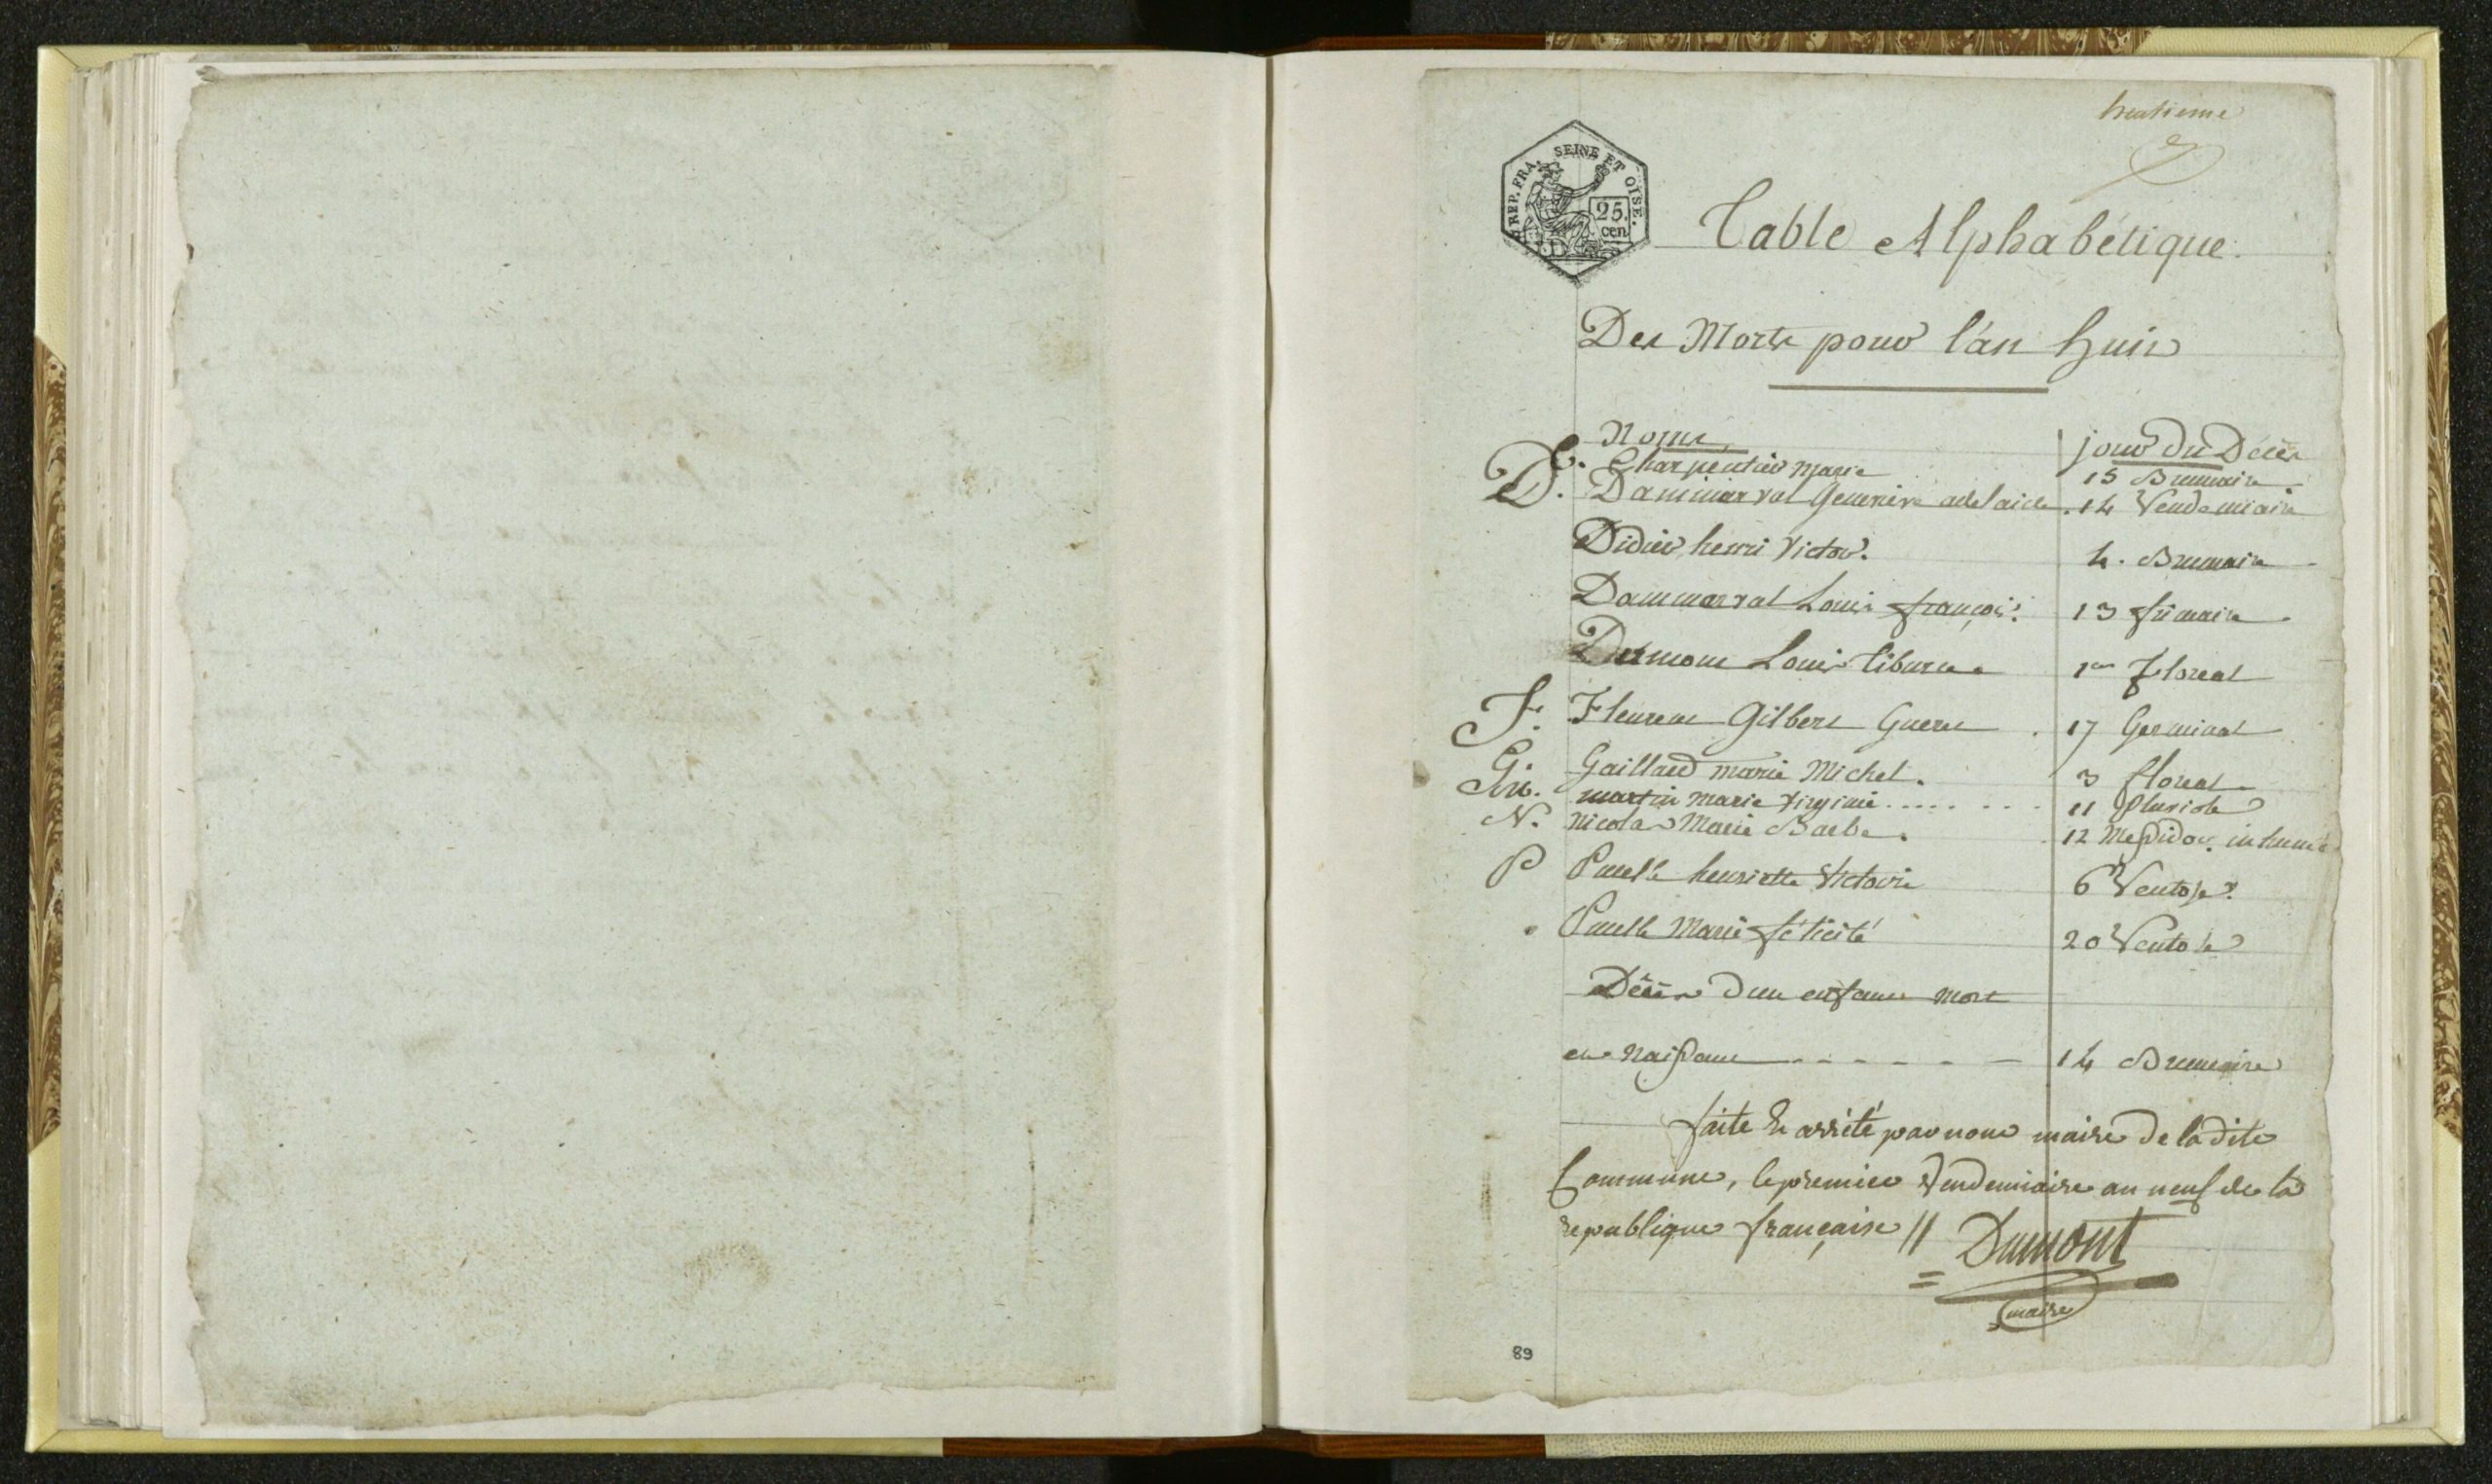 REP. FRA. SEINE ET OISE.
25. cen
Table Alphabétique
Des Morts pour l'an huit
Noms jour du Décès
C. Charpentier Marie 15 Brumaire
D. Dammarval Genevieve adelaide. 14 Vendemiaire
Didier henri Victor. 4. Brumaire
Dammarval Louis françois. 13 frimaire
Louis Tiburce 1er floreal
F. Gilbert 17 Germinal
G. Gaillard marie Michel. 3 floreal
M. martin marie virginie........ 11 pluviose
N. Nicolas Marie Barbe. 12 Messidor. inhumé
P henriette Victoire 6 Ventose
Marie félicité 20 Ventose
Décès d'un enfant mort
en naissant - - - - - - 14 Brumaire
faite & arrêté par nous maire de la dite
Commune, le premier Vendemiaire an neuf de la
republique française //
Dumont
maire
89